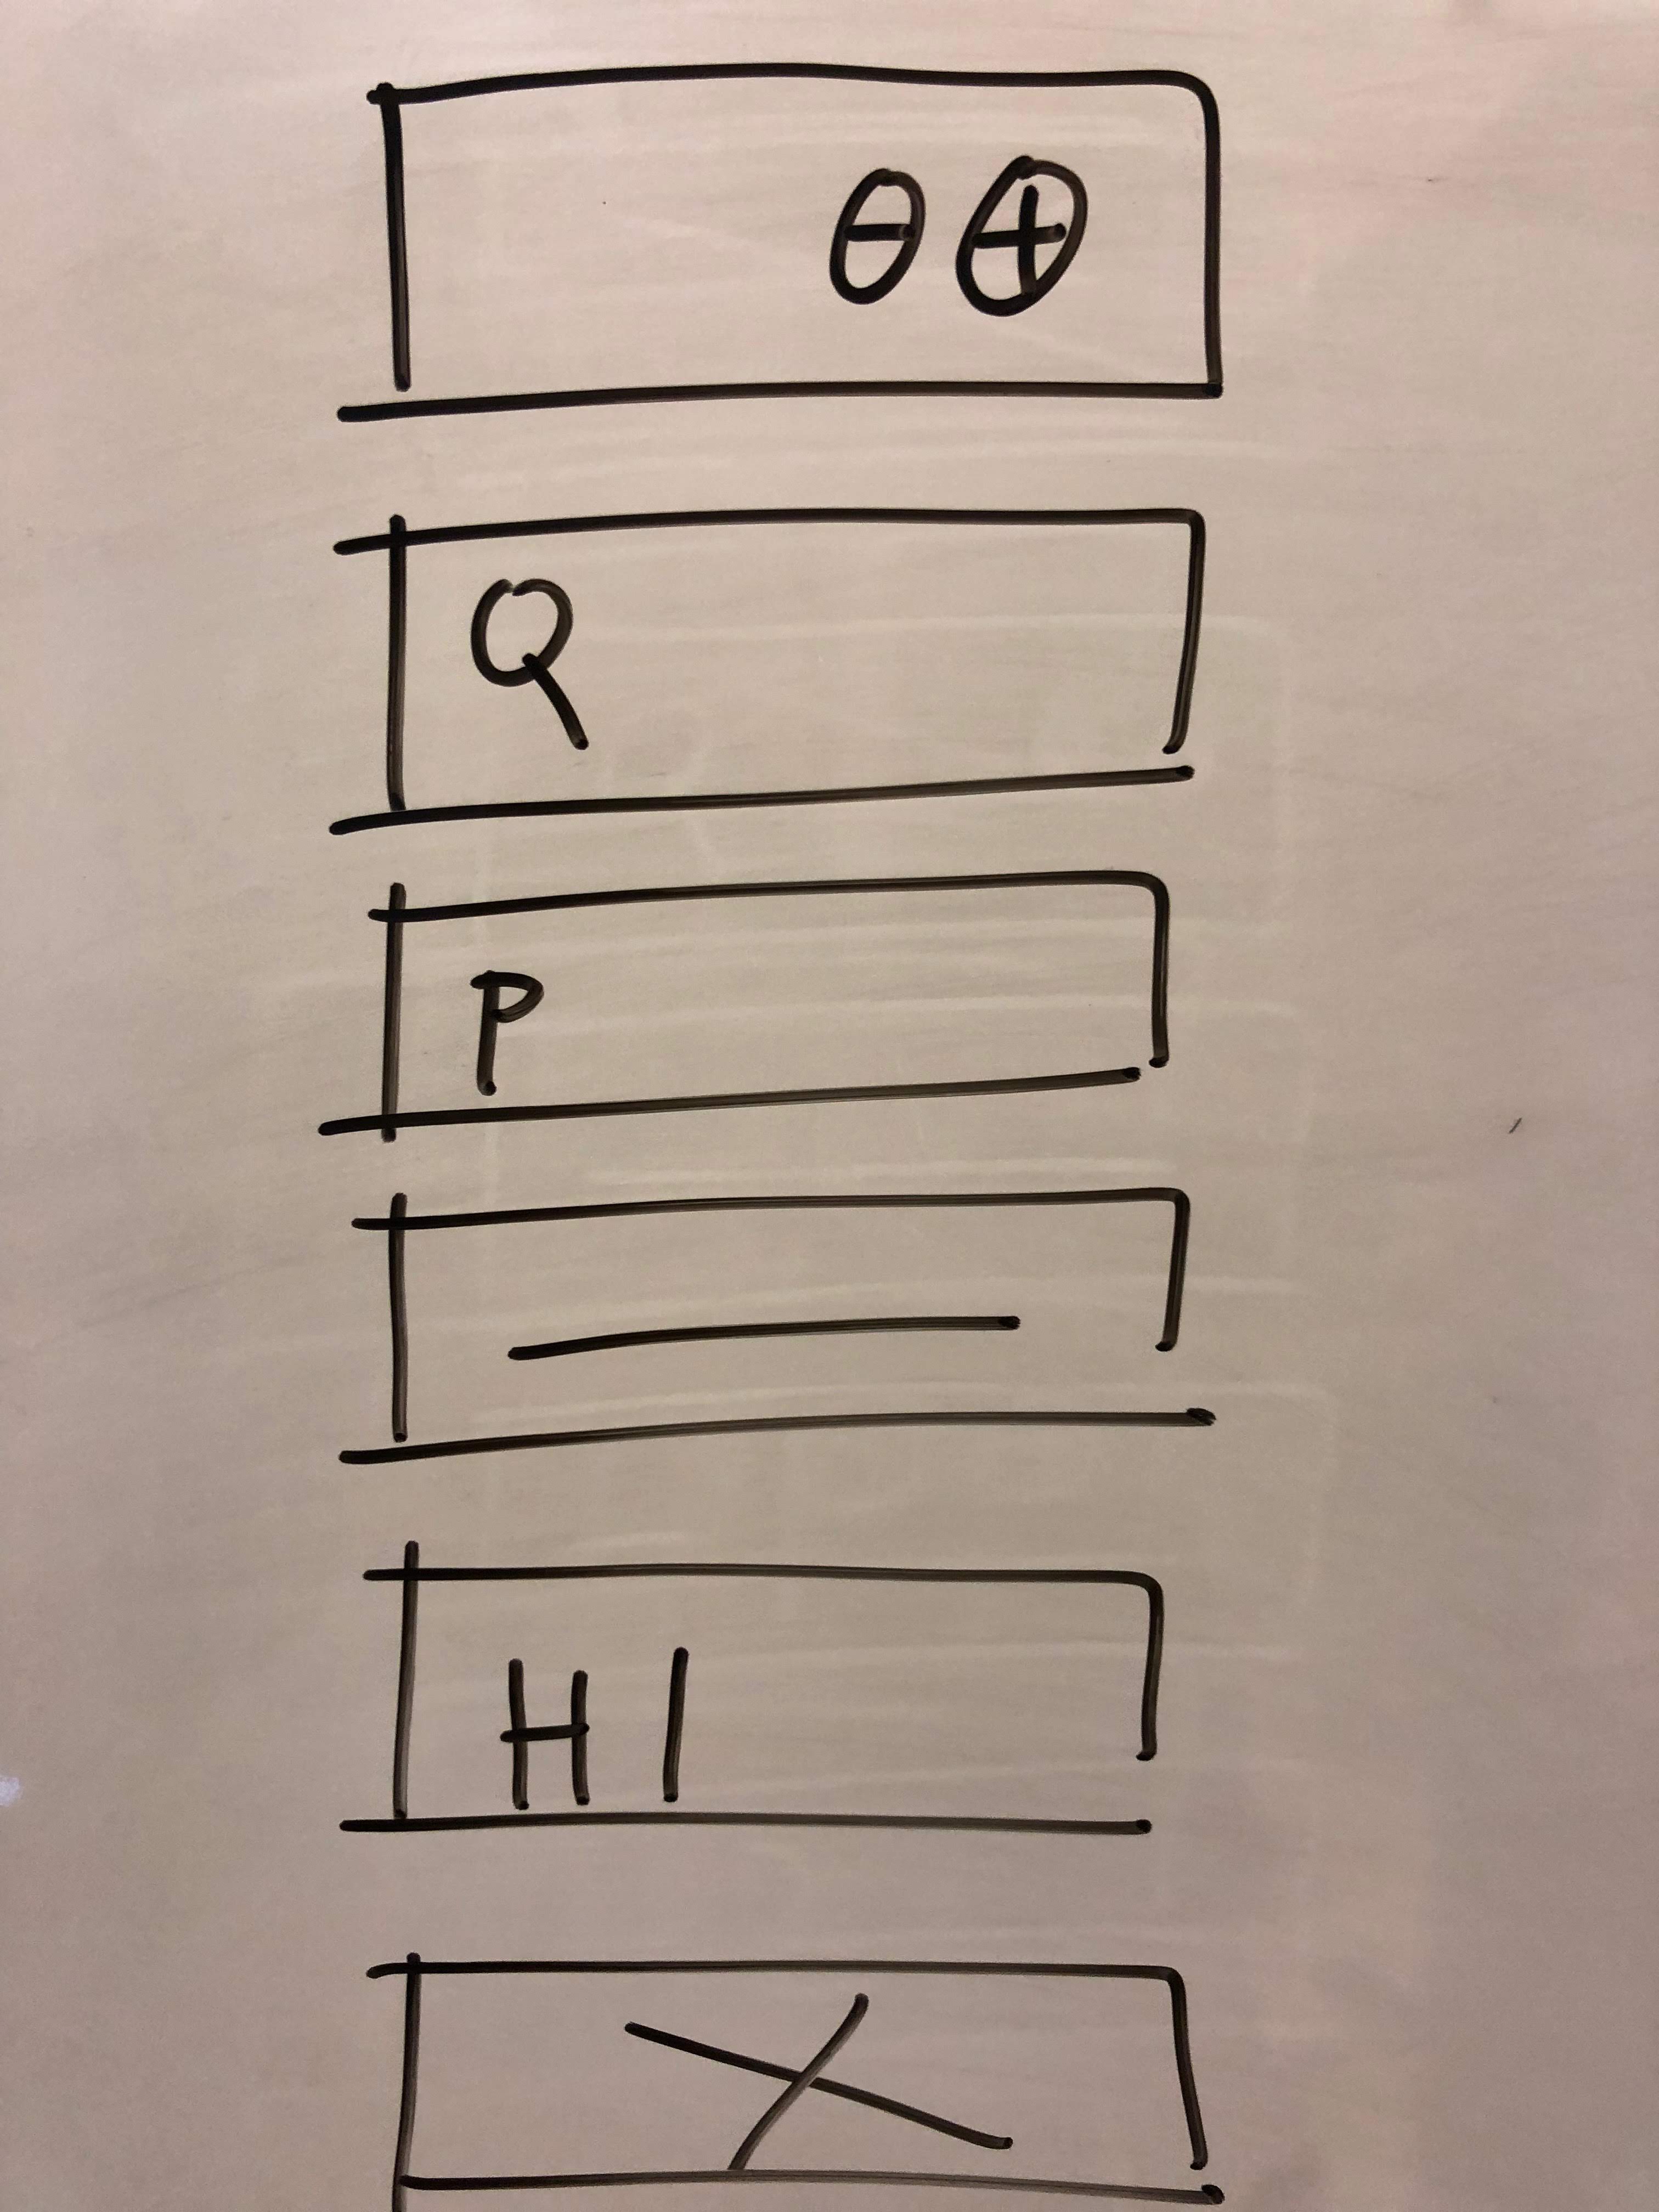 ⊖ ⊕
Q
P
—
HI
X